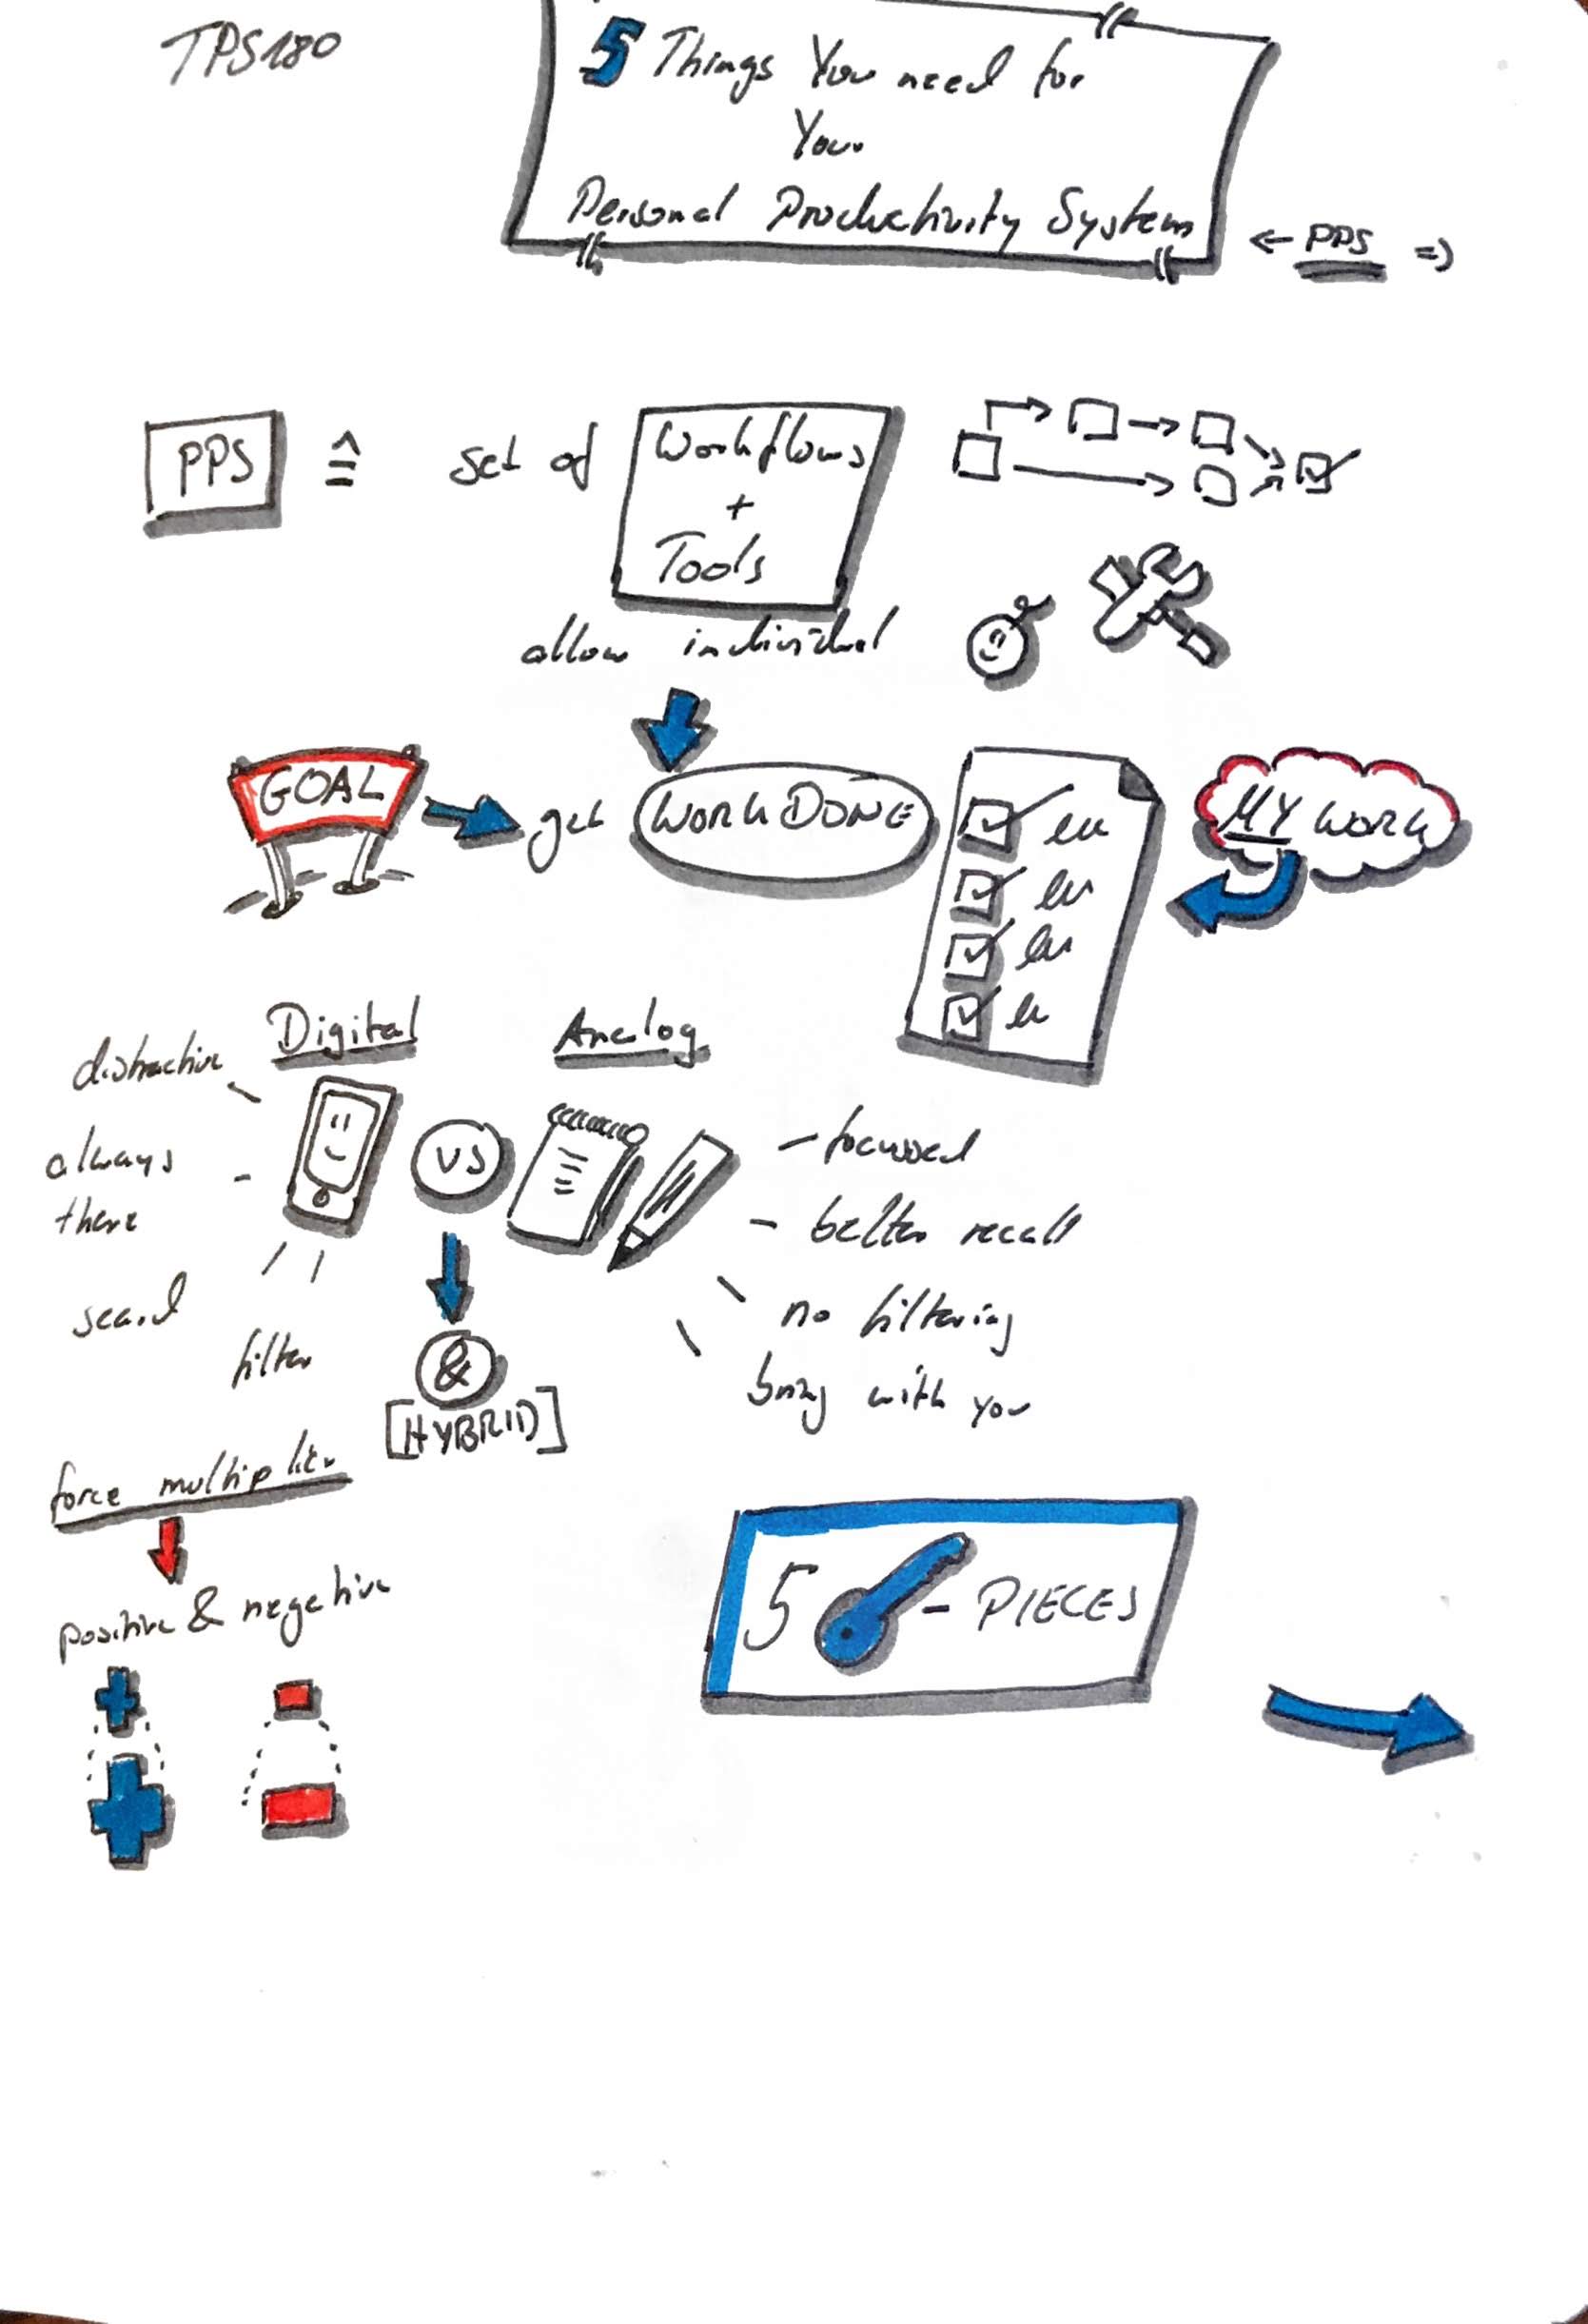 TPS180
5 Things You need for
Your
Personal Productivity System
← PPS =)
PPS ≙ set of
Workflows
+
Tools
allow individual
GOAL
get
WORK DONE
MY WORK
Digital
Analog
distractive
always
there
filter
VS
&
[HYBRID]
- focussed
- better recall
no filtering
bring with you
force multiplier
positive & negative
5 - PIECES